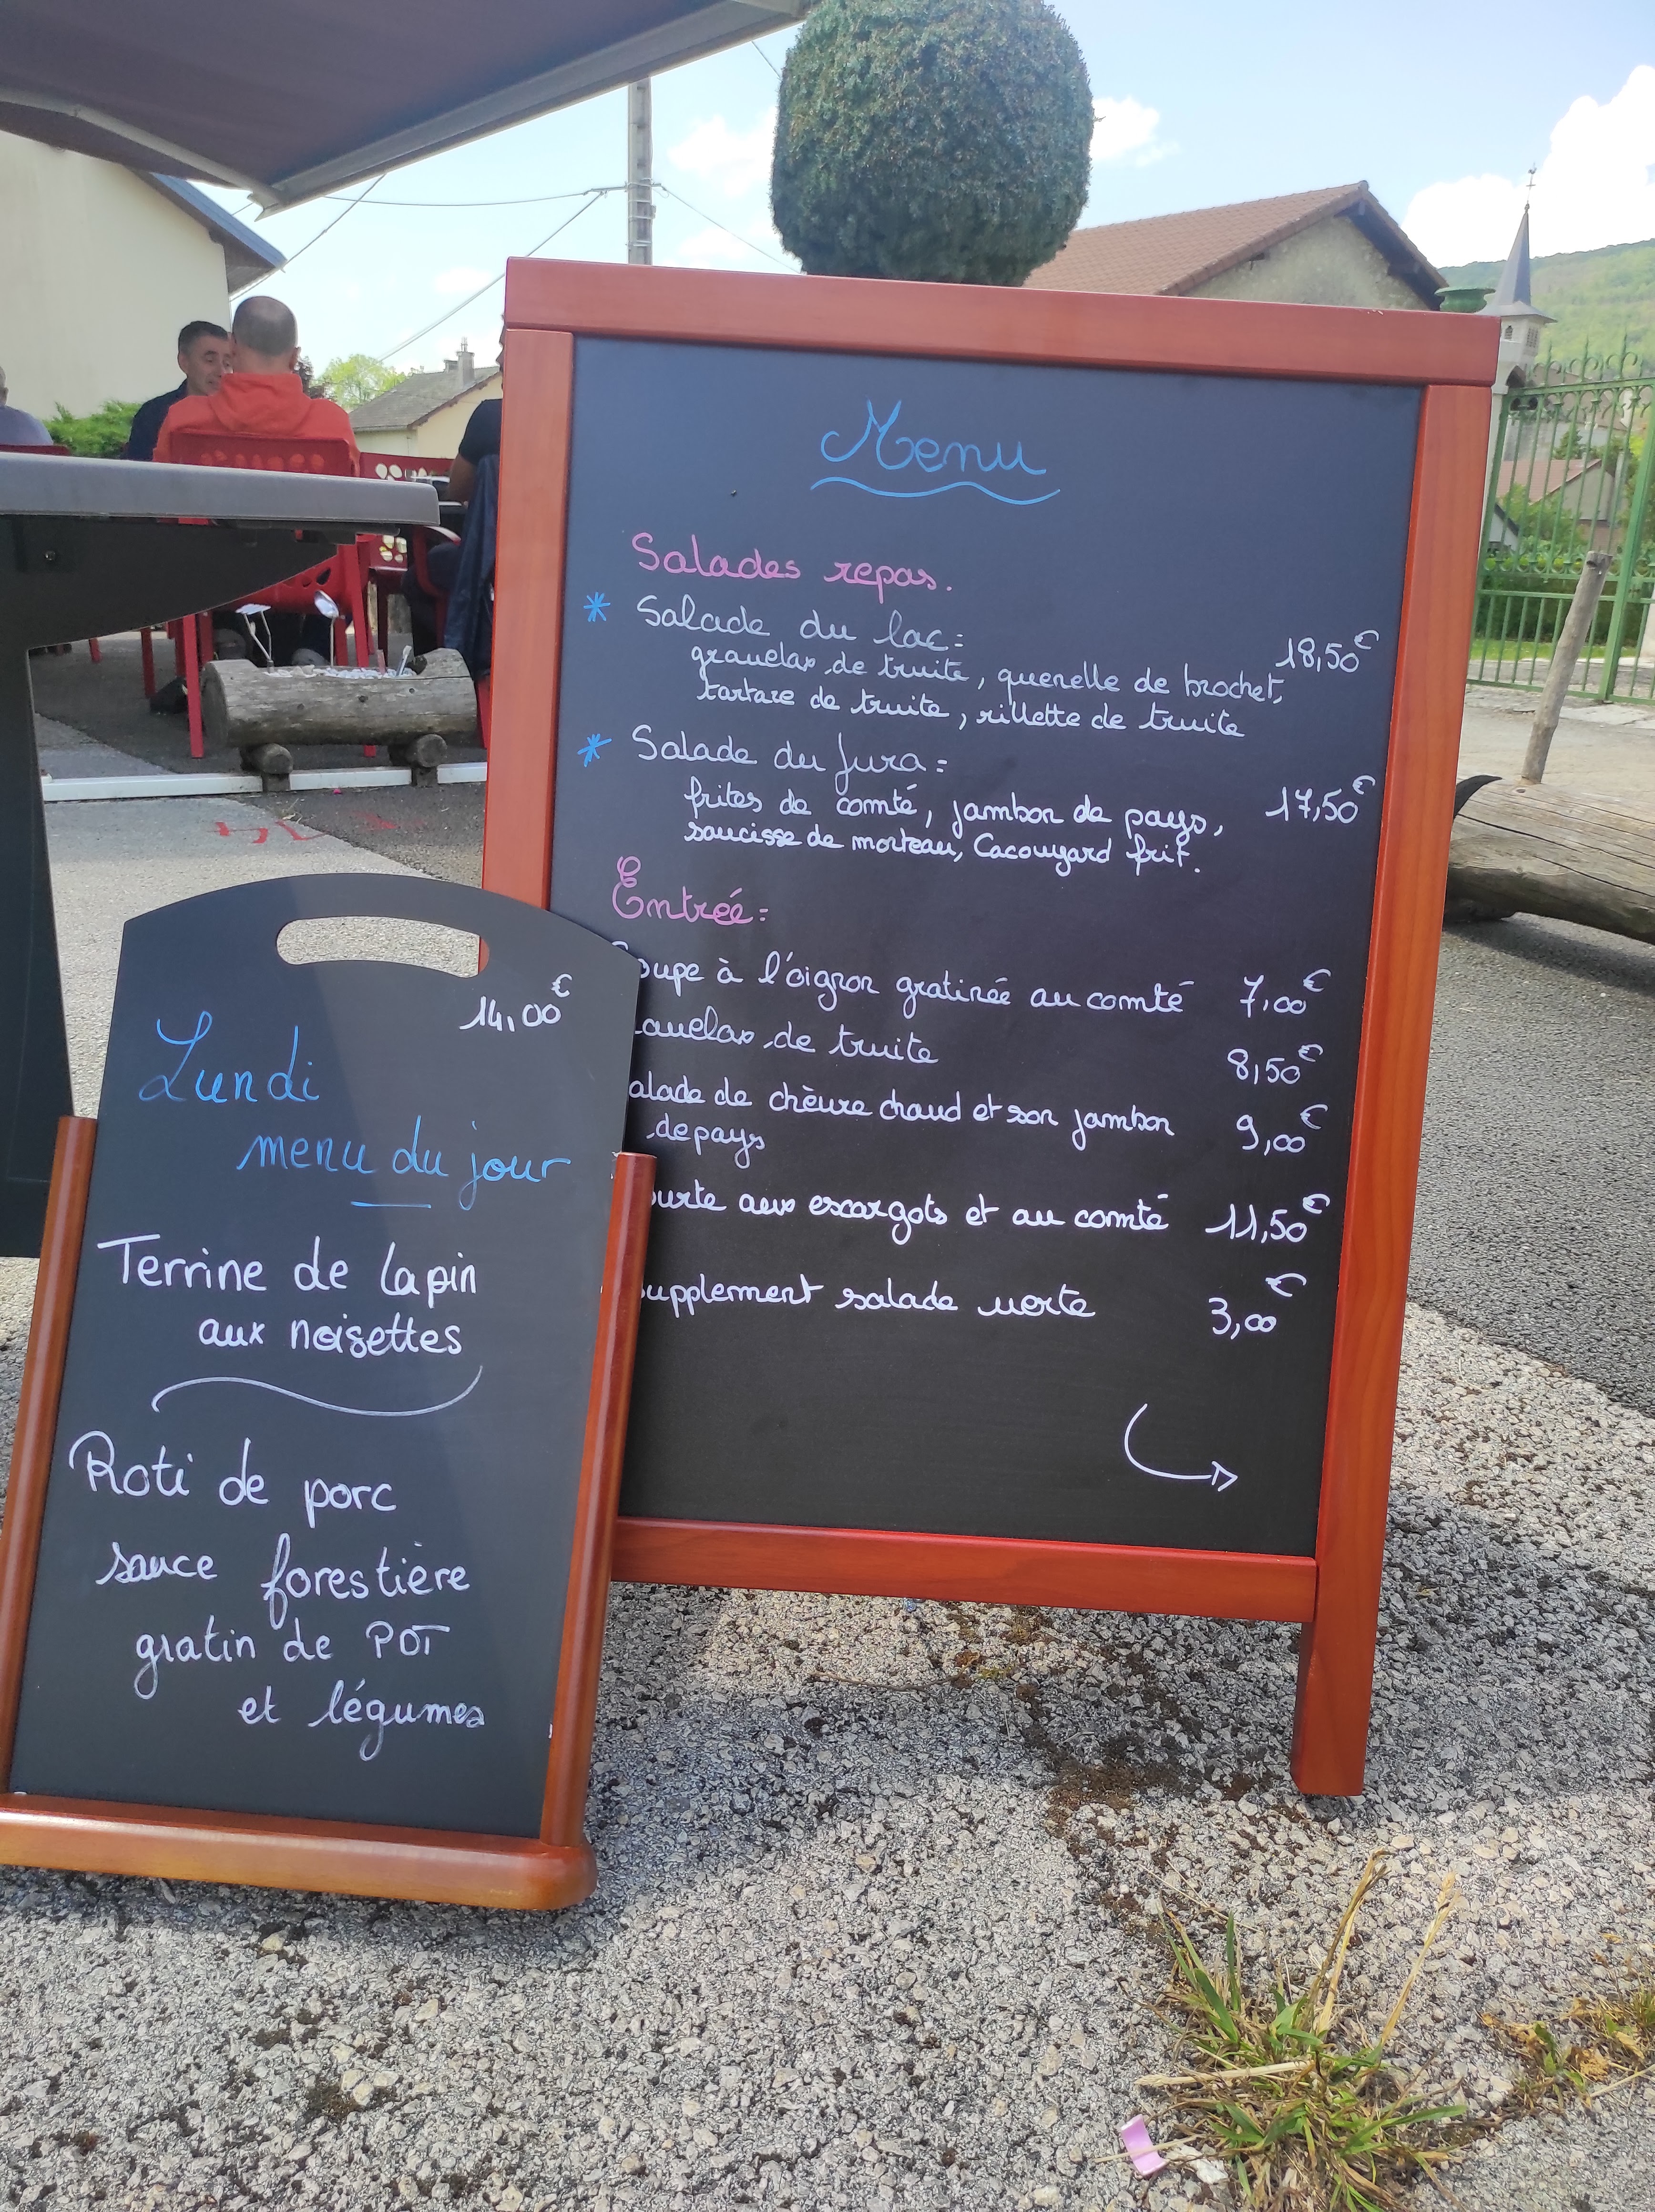 Menu
Salades repas.
* Salade du lac =
18,50€
gravelax de truite, quenelle de brochet,
tartare de truite, rillette de truite
* Salade du Jura =
frites de comté, jambon de pays, 17,50€
saucisse de morteau, Cacouyard frit.
Entrée =
oupe à l'oignon gratinée au comté 7,00€
avelax de truite 8,50€
alade de chèvre chaud et son jambon 9,00€
de pays
ourte aux escargots et au comté 11,50€
upplement salade verte 3,00€
14,00€
Lundi
menu du jour
Terrine de lapin
aux noisettes
Roti de porc
sauce forestière
gratin de PDT
et légumes